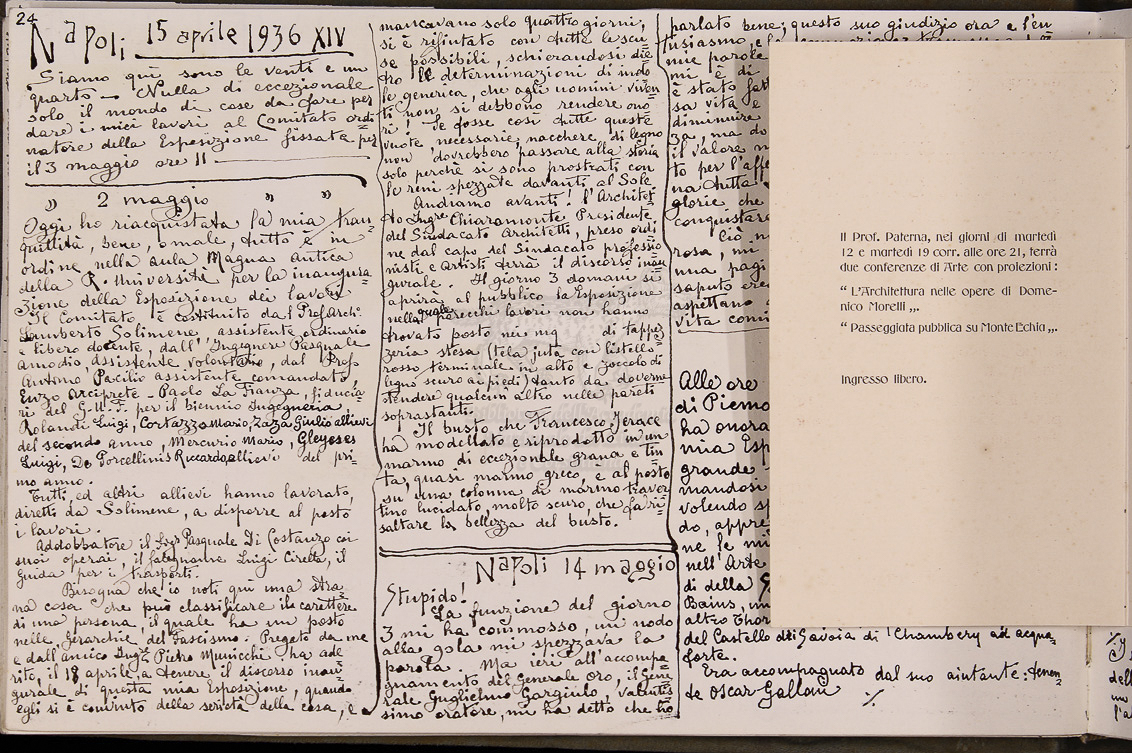 24
Napoli 15 aprile 1936 XIV
Siamo qui sono le venti e un
quarto — Nulla di eccezionale
solo il mondo di cose da fare per
dare i miei lavori al Comitato ordi
natore della Esposizione fissata per
il 3 maggio ore 11
" 2 maggio " "
Oggi ho riacquistata la mia tran
quillità, bene, o male, tutto è in
ordine, nella aula Magna Antica
della R. Università per la inaugura
zione della Esposizione dei lavori
Il Comitato è costituito dal Prof. Arch.
Lamberto Solimene, assistente ordinario
e libero docente, dall'Ingegnere Pasquale
Amodio, assistente volontario, dal Prof
Antimo Pacilio assistente comandato,
Enzo Arciprete - Paolo La Franza, fiducia
ri del G.U.F. per il biennio Ingegneria,
Rolandi Luigi, Cortazzo Mario, Zaza Giulio allievi
del secondo anno, Mercurio Mario, Gleyeses
Luigi, De Porcellinis Riccardo, allievi del pri
mo anno.
Tutti ed altri allievi hanno lavorato,
diretti da Solimene, a disporre al posto
i lavori.
Addobbatore il Sigr Pasquale Di Costanzo coi
suoi operai, il falegname Luigi Cirella, il
Guida per i trasporti.
Bisogna che io noti qui una stra-
na cosa che può classificare il carattere
di una persona il quale ha un posto
nelle Gerarchie del Fascismo. Pregato da me
e dall'amico Ingre Pietro Municchi ha ade
rito, il 18 aprile, a tenere il discorso inau-
gurale di questa mia Esposizione, quando
egli si è convinto della serietà della cosa, e
mancavano solo quattro giorni,
si è rifiutato con tutte le scu=
se possibili, schierandosi die=
tro le determinazioni di indo
le generica, che agli uomini viven
ti non si debbono rendere ono
ri! Se fosse così tutte queste
vuote, necessarie, nacchere, di legno
non dovrebbero passare alla storia
solo perchè si sono prostrati con
le reni spezzate davanti al Sole
Andiamo avanti! l'Architet
to Ingre Chiaramonte Presidente
del Sindacato Architetti, preso ordi
ne dal capo del Sindacato professio
nisti e Artisti terrà il discorso inau
gurale. Il giorno 3 domani si
aprirà al pubblico la Esposizione
nella quale parecchi lavori non hanno
trovato posto nei mq di tappez
zeria stesa (tela juta con listello
rosso terminale in alto e zoccolo di
legno scuro ai piedi) tanto da doverne
stendere qualcun altro nelle pareti
soprastanti.
Il busto che Francesco Jerace
ha modellato e riprodotto in un
marmo di eccezionale grana e tin
ta, quasi marmo greco, è al posto
su una colonna di marmo traver
tino lucidato, molto scuro, che fa ri=
saltare la bellezza del busto.
Napoli 14 maggio
Stupido!
La funzione del giorno
3 mi ha commosso, un nodo
alla gola mi spezzava la
parola. Ma ieri all'accompa=
gnamento del Generale Oro, il Gene
rale Guglielmo Gargiulo, valentis
simo oratore, mi ha detto che ho
parlato bene; questo suo giudizio ora e l'en
tusiasmo e
mie parole
mi è di
è stato
sa vita e
diminuire
za, ma do
il valore
to per l'affe
na tutta
glorie, che
conquistare
Ciò
rosa, mi
una pagi
saputo
aspettano
vita
Alle ore
di Piemo
ha onora
mia Esp
grande
mandosi
volendo
do, appre
ne le mi
nell'Arte
di della
Bains, un
altro Thor
del Castello di Savoia di Chambery ad acqua
forte.
Era accompagnato dal suo aiutante: tenen
te Oscar Galloni
Il Prof. Paterna, nei giorni di martedì
12 e martedì 19 corr. alle ore 21, terrà
due conferenze di Arte con proiezioni:
“ L'Architettura nelle opere di Dome-
nico Morelli „.
“ Passeggiata pubblica su Monte Echia „.
Ingresso libero.